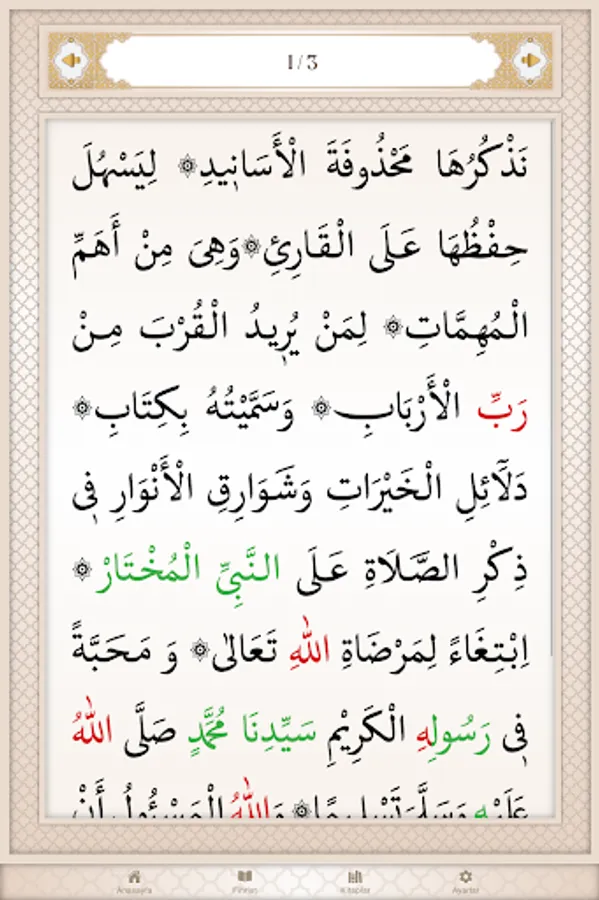 1/3
نَذْكُرُهَا مَحْذُوفَةَ الْأَسَانِيدِ۞ لِيَسْهُلَ
حِفْظُهَا عَلَى الْقَارِئِ۞وَهِىَ مِنْ أَهَمِّ
الْمُهِمَّاتِ۞ لِمَنْ يُرِيدُ الْقُرْبَ مِنْ
رَبِّ الْأَرْبَابِ۞ وَسَمَّيْتُهُ بِكِتَابِ۞
دَلَآئِلِ الْخَيْرَاتِ وَشَوَارِقِ الْأَنْوَارِ فِى
ذِكْرِ الصَّلَاةِ عَلَى النَّبِىِّ الْمُخْتَارْ۞
اِبْتِغَاءً لِمَرْضَاةِ اللّٰهِ تَعَالٰى۞ وَ مَحَبَّةً
فِى رَسُولِهِ الْكَرِيْمِ سَيِّدِنَا مُحَمَّدٍ صَلَّى اللّٰهُ
عَلَيْهِ وَسَلَّمَ تَسْلِيمًا۞ وَاللّٰهُ الْمَسْئُولُ أَنْ
Anasayfa Fihrist Kitaplar Ayarlar